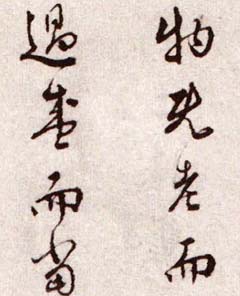 物既老而
過盛而當